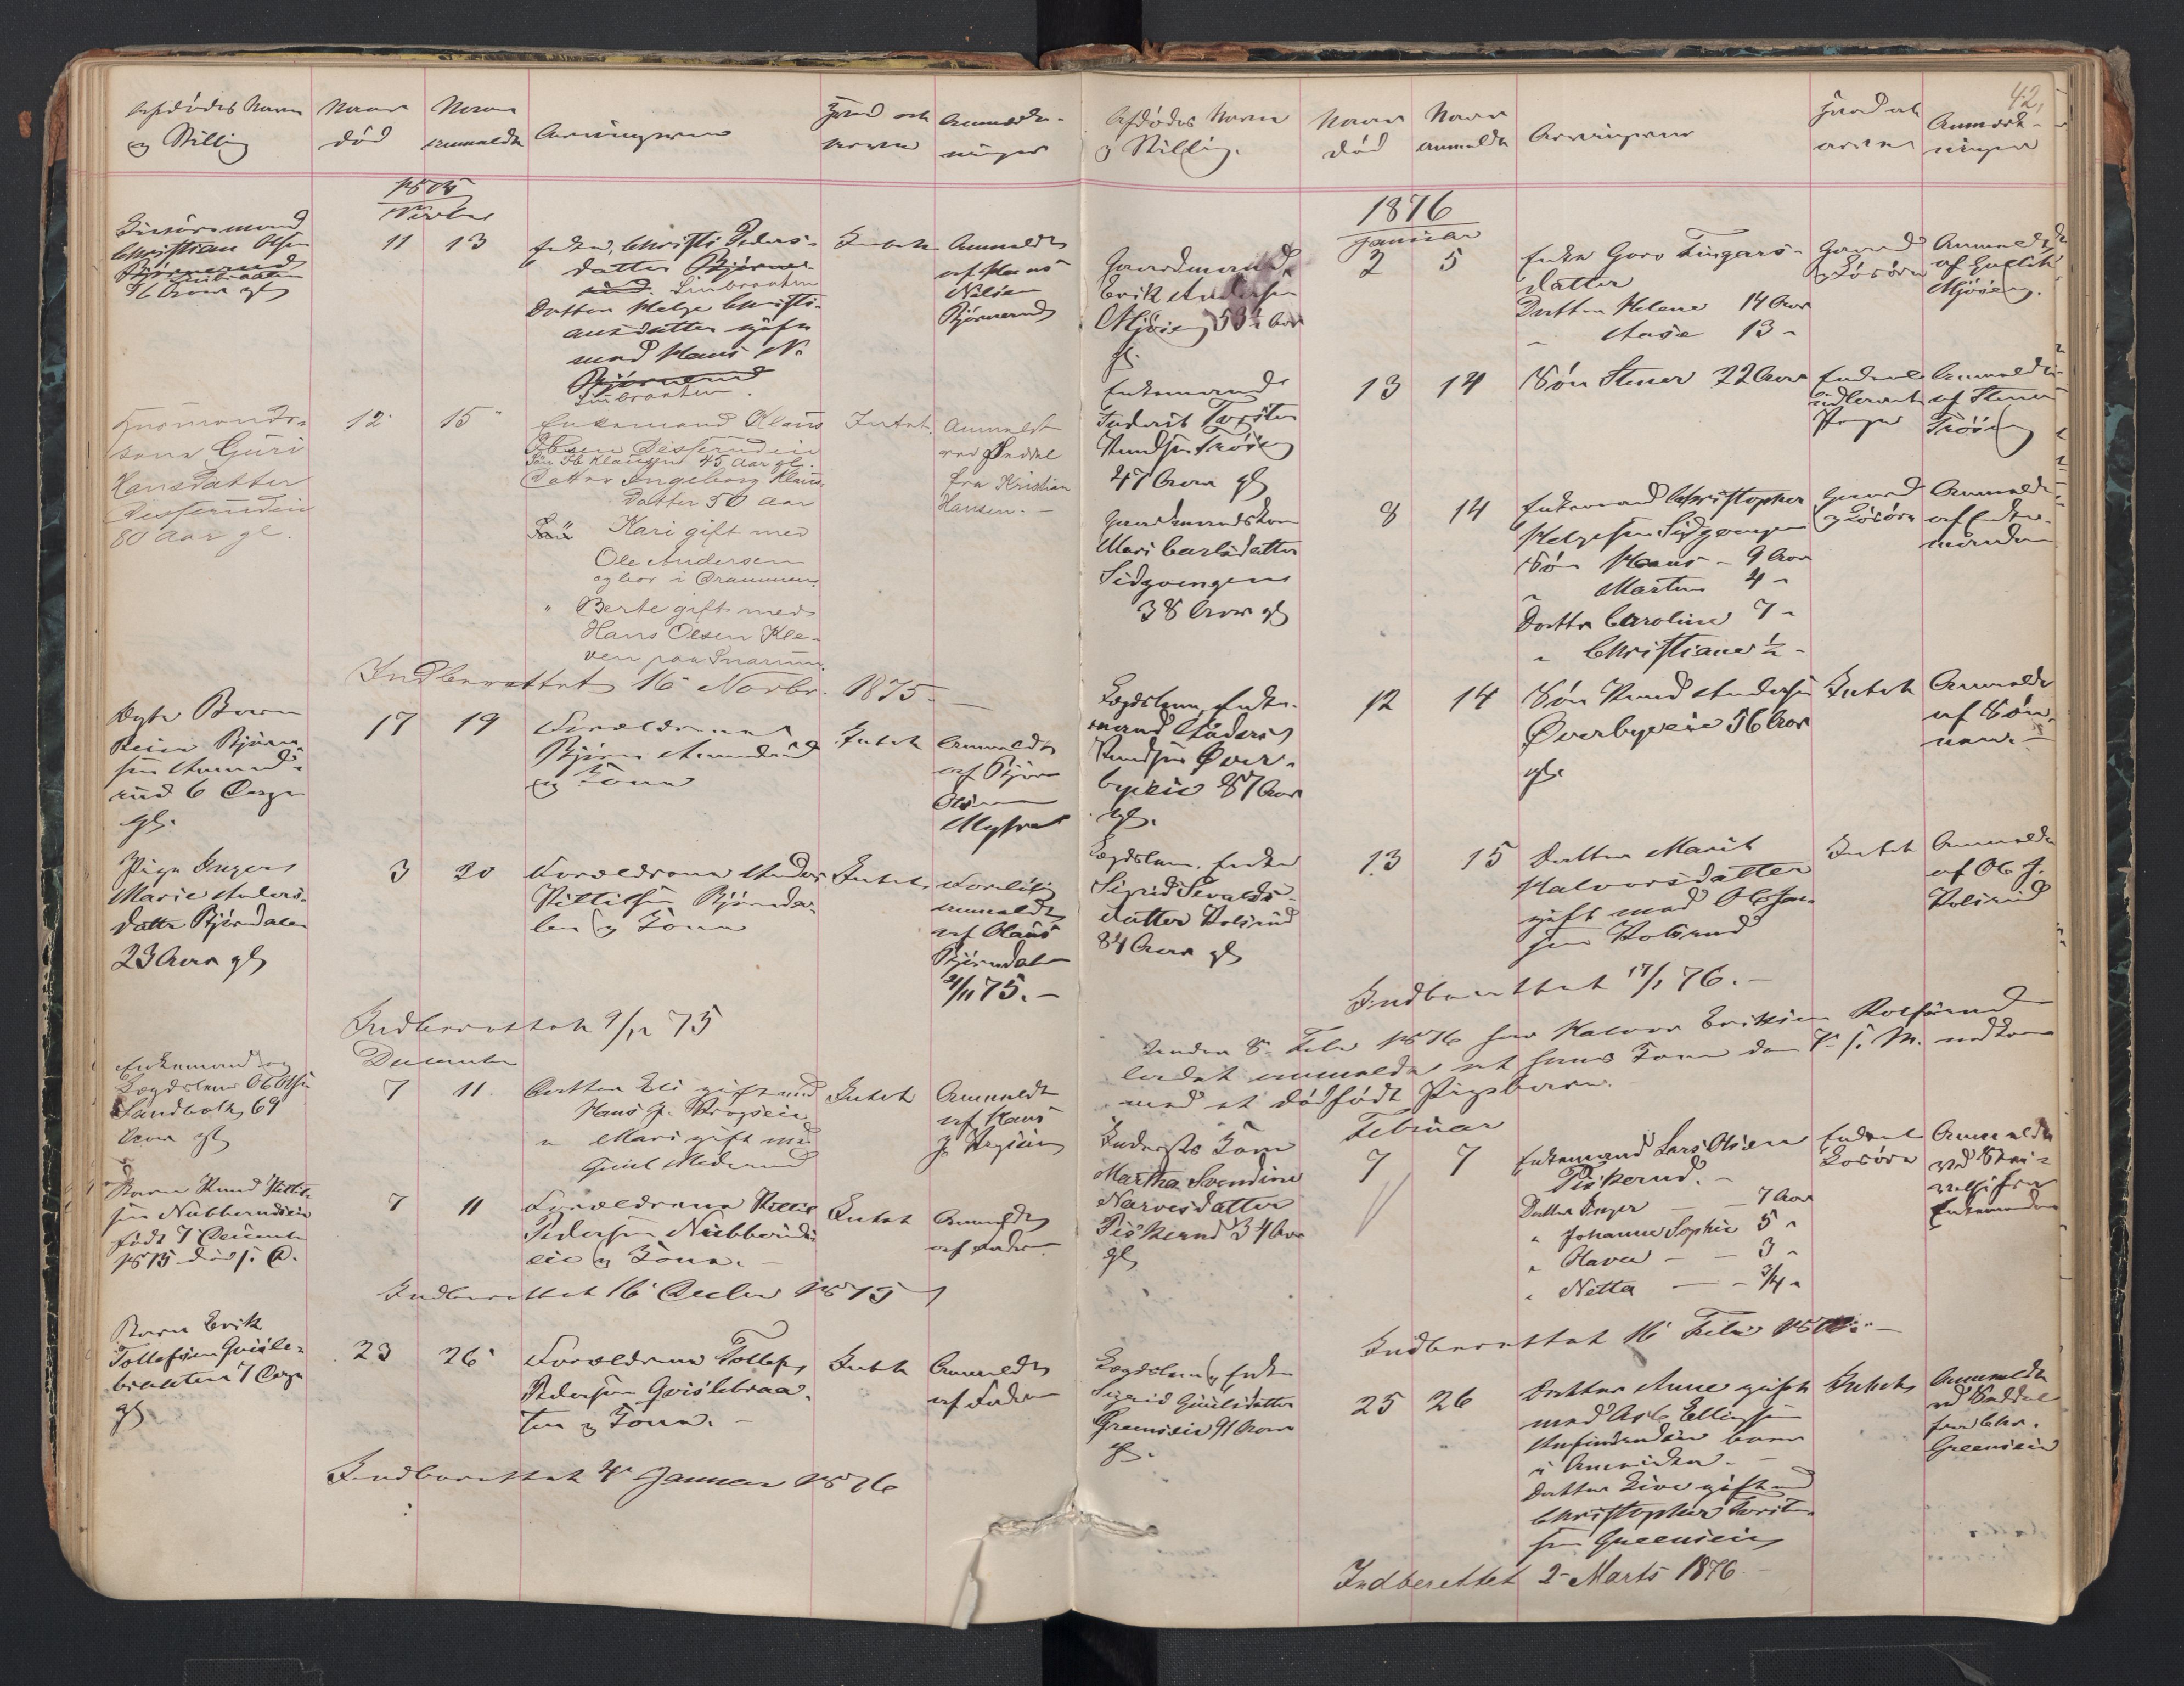 Afdødes Navn
og Stilling
Naar
død
Naar
anmeldt
Arvingerne
Jord eller
Anmærk-
ninger
1875
Novbr
Christian Olsen
Bjørnerud
Linbraaten
76 Aar gl
11
13
Enke, Christi Peders-
datter Bjørne-
rud. Linbraaten
Datter Helge Christi-
ansdatter gift
med Hans N.
Bjørnerud
Linbraaten.
Intet
Anmeldt
af Hans
Nilsen
Bjørnerud
Husmands-
kone Guri
Hansdatter
Desserudeie
80 Aar gl.
12
15
Enkemand Klaus
Ibsen Desserudeie
Søn Ib Klausen 45 Aar gl.
Datter Ingeborg Klaus-
datter 50 Aar
" Kari gift med
Ole Andersen
og bor i Drammen.
" Berte gift med
Hans Olsen Kle-
ven paa Snarum.
Intet.
Anmeldt
ved Seddel
fra Kristian
Hansen.-
Indberettet 16 Novbr. 1875.-
Ægte Barn
Reier Bjørn-
sen Amund-
rud 6 Dage
gl.
17
19
Forældrene
Bjørn Amundrud
og Kone
Intet
Anmeldt
af Bjørn
Olsen
Myhre
Pige Inger
Marie Anders-
datter Bjørndalen
23 Aar gl
3
20
Forældrene Anders
Kittilsen Bjørnda-
len og Kone
Intet
Foreløbig
anmeldt
af Olaus
Bjørndalen
/11 75.-
Indberettet 9/12 75
December
Enkemand og
Lægdslem Ob Olsen
Sandbolt, 69
Aar gl
7
11
Datter Eli gift med
Hans J.
" Mari gift med
Intet
Anmeldt
af Hans
J.
Barn Knud Kittil-
sen Nubberudeie
født 7 December
1875 død s. D.
7
11
Forældrene Kittil
Pedersen Nubberuds-
eie og Kone.-
Intet
Anmeldt
af Faderen
Indberettet 16 Decbr 1875
Barn Erik
Tollefsen Gvisle-
braaten 7 Dage
gl
23
26
Forældrene Tollef
Pedersen Gvislebraa-
ten og Kone.-
Intet
Anmeldt
af Faderen
Indberettet 4 Januar 1876
42,
Afdødes Navn
og Stilling.
Naar
død
Naar
anmeldt
Arvingerne
Jord eller
Anmærk-
ninger
1876
Januar
Gaardmand
Erik Andersen
Mjøseng 53½ Aar
gl.
2
5
Enke Goro Tingars-
datter
Datter Helene 14 Aar
" Aase 13 -
Gaard
og Løsøre
Anmeldt
af Gullik
Mjøseng.
Enkemand
Inderst Torsten
Knudsen Frøseng
47 Aar gl
13
14
Søn Stener 22 Aar
Endeel
udlaant
Penge
Anmeldt
af Stener
Frøseng
Gaardmandskone
Mari Carlsdatter
Sidgvengen
38 Aar gl
8
14
Enkemand Christopher
Helgesen Sidgvengen
Søn Hans - 9 Aar
" Martin 4 -
Datter Caroline 7 -
" Christiane ½ -
Gaard
og Løsøre
Anmeldt
af Enke-
manden
Lægdslem, Enke-
mand Anders
Knudsen Øver-
byeie 87 Aar
gl.
12
14
Søn Knud Andersen
Øverbyeie 56 Aar
gl.
Intet
Anmeldt
af Søn-
nen.-
Lægdslem. Enke
Sigrid Sevalds-
datter Holsrud
84 Aar gl
13
15
Datter Marit
Halvorsdatter
gift med Ob Jan-
sen Holsrud
Intet
Anmeldt
af Ob J.
Holsrud
Indberettet 17/1 76.-
Under 8. Febr 1876 har Halvor Eriksen Rolfsrud
ladet anmelde at hans Kone den 7. s. M. nedkom
med et dødfødt Pigebarn.
Februar
Inderste Kone
Martha Svendine
Narvesdatter
Piskerud 34 Aar
gl
7
7
Enkemand Lars Olsen
Piskerud.-
Datter Inger - 7 Aar
" Johanne Sophie 5 "
" Olava - - 3 -
" Netta - - ¾ "
Endeel
Løsøre
Anmeldt
ved Skri-
velse fra
Enkemanden
Indberettet 16 Febr 1876.-
Lægdslem og Enke
Sigrid Gulliksdatter
Greenseie 91 Aar
gl.
25
26
Datter Anne gift
med Asle Ellingsen
boer
i Amerika.-
Datter Live gift med
Christopher Torsten-
sen Greenseie
Intet
Anmeldt
ved Seddel
fra Chr.
Greenseie
Indberettet 2 Marts 1876.-